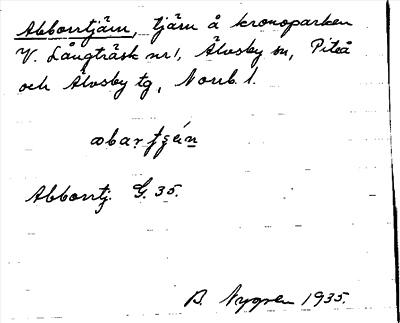 Abborrtjärn, tjärn å kronoparken
V. Långträsk nr 1, Älvsby sn, Piteå
och Älvsby tg, Norrb. l.
Abborrtj. G. 35.
B. Nygren 1935.